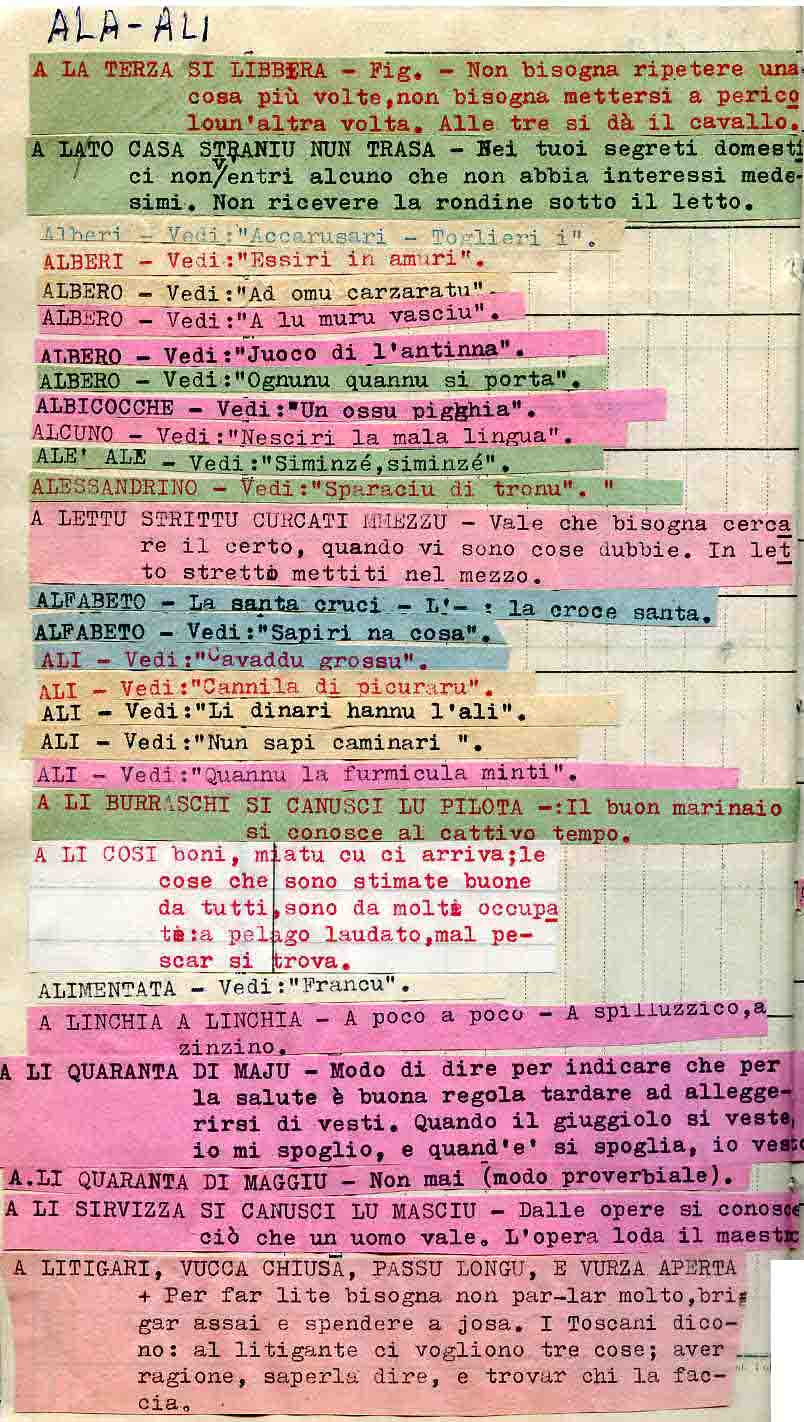 ALA-ALI
A LA TERZA SI LIBBERA - Fig. - Non bisogna ripetere una
cosa più volte,non bisogna mettersi a perico
loun'altra volta. Alle tre si dà il cavallo.
A LATO CASA STRANIU NUN TRASA - Nei tuoi segreti domesti
ci non v'entri alcuno che non abbia interessi mede-
simi. Non ricevere la rondine sotto il letto.
Alberi - Vedi:"Accarusari - Toglieri i".
ALBERI - Vedi:"Essiri in amuri".
ALBERO - Vedi:"Ad omu carzaratu".
ALBERO - Vedi:"A lu muru vasciu".
ALBERO - Vedi:"Juoco di l'antinna".
ALBERO - Vedi:"Ognunu quannu si porta".
ALBICOCCHE - Vedi:"Un ossu pigghia".
ALCUNO - Vedi:"Nesciri la mala lingua".
ALE' ALE - Vedi:"Siminzé,siminzé".
ALESSANDRINO - Vedi:"Sparaciu di tronu". "
A LETTU STRITTU CURCATI MMEZZU - Vale che bisogna cerca
re il certo, quando vi sono cose dubbie. In let
to stretto mettiti nel mezzo.
ALFABETO - La santa cruci - L'- : la croce santa.
ALFABETO - Vedi:"Sapiri na cosa".
ALI - Vedi:"Cavaddu grossu".
ALI - Vedi:"Cannila di picuraru".
ALI - Vedi:"Li dinari hannu l'ali".
ALI - Vedi:"Nun sapi caminari ".
ALI - Vedi:"Quannu la furmicula minti".
A LI BURRASCHI SI CANUSCI LU PILOTA -:Il buon marinaio
si conosce al cattivo tempo.
A LI COSI boni, miatu cu ci arriva;le
cose che sono stimate buone
da tutti,sono da molti occupa
te:a pelago laudato,mal pe-
scar si trova.
ALIMENTATA - Vedi:"Francu".
A LINCHIA A LINCHIA - A poco a poco - A spilluzzico,a
zinzino.
A LI QUARANTA DI MAJU - Modo di dire per indicare che per
la salute è buona regola tardare ad allegge-
rirsi di vesti. Quando il giuggiolo si veste,
io mi spoglio, e quand'e' si spoglia, io vesto
A.LI QUARANTA DI MAGGIU - Non mai (modo proverbiale).
A LI SIRVIZZA SI CANUSCI LU MASCIU - Dalle opere si conosce
ciò che un uomo vale. L'opera loda il maestro
A LITIGARI, VUCCA CHIUSA, PASSU LONGU, E VURZA APERTA
+ Per far lite bisogna non par-lar molto,bri
gar assai e spendere a josa. I Toscani dico-
no: al litigante ci vogliono tre cose; aver
ragione, saperla dire, e trovar chi la fac-
cia.